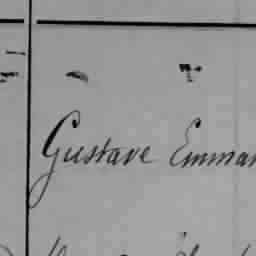 Gustave Emman